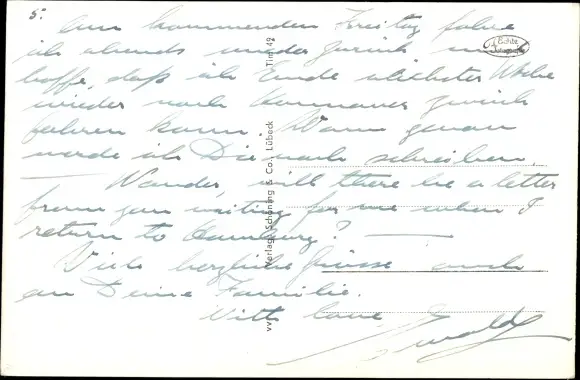 5.
Am kommenden Freitag fahre
ich abends wieder zurück und
hoffe, daß ich Ende nächster Woche
wieder nach Hannover zurück
fahren kann. Wann genau
werde ich Dir noch schreiben.
Wonder, will there be a letter
from you waiting for me when I
return to Hamburg?
Viele herzliche Grüsse auch
an Deine Familie.
With love,
Ewald
Echte Fotografie
Verlag Schöning & Co., Lübeck
Tim 49